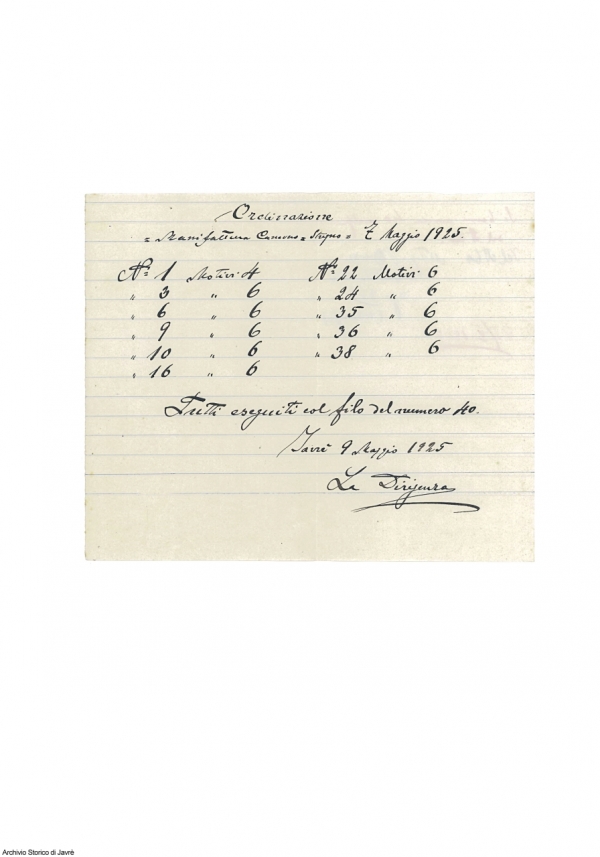 Ordinazione
"Manifattura Camuno Strigno" 7 Maggio 1925.
Nº 1 Motivi 4 Nº 22 Motivi 6
" 3 " 6 " 24 " 6
" 6 " 6 " 35 " 6
" 9 " 6 " 36 " 6
" 10 " 6 " 38 " 6
" 16 " 6
Tutti eseguiti col filo del numero 40.
Javrè 9 Maggio 1925
La Dirigenza
Archivio Storico di Javrè